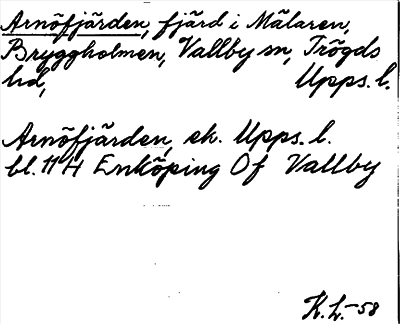 Arnöfjärden, fjärd i Mälaren,
Bryggholmen, Vallby sn, Trögds
hd, Upps. l.
Arnöfjärden, ek. Upps. l.
bl. 11 H Enköping Of Vallby
K.L.-58